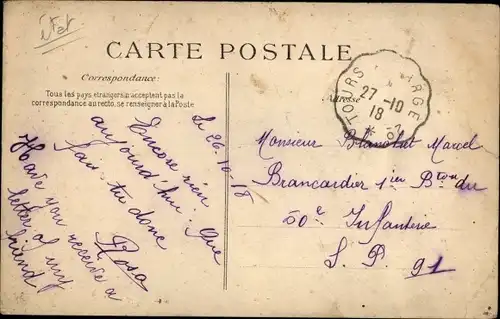 état
CARTE POSTALE
Correspondance:
Tous les pays étrangers n'acceptent pas la
correspondance au recto, se renseigner à la Poste
Adresse
TOURS
27 -10
18
Le 26-10-18
Encore rien
aujourd'hui. Que
fais-tu donc
Rosa
Have you receive a
letter of my
friend
Monsieur Marcel
Brancardier 1ier Bton du
50e Infanterie
S. P. 91